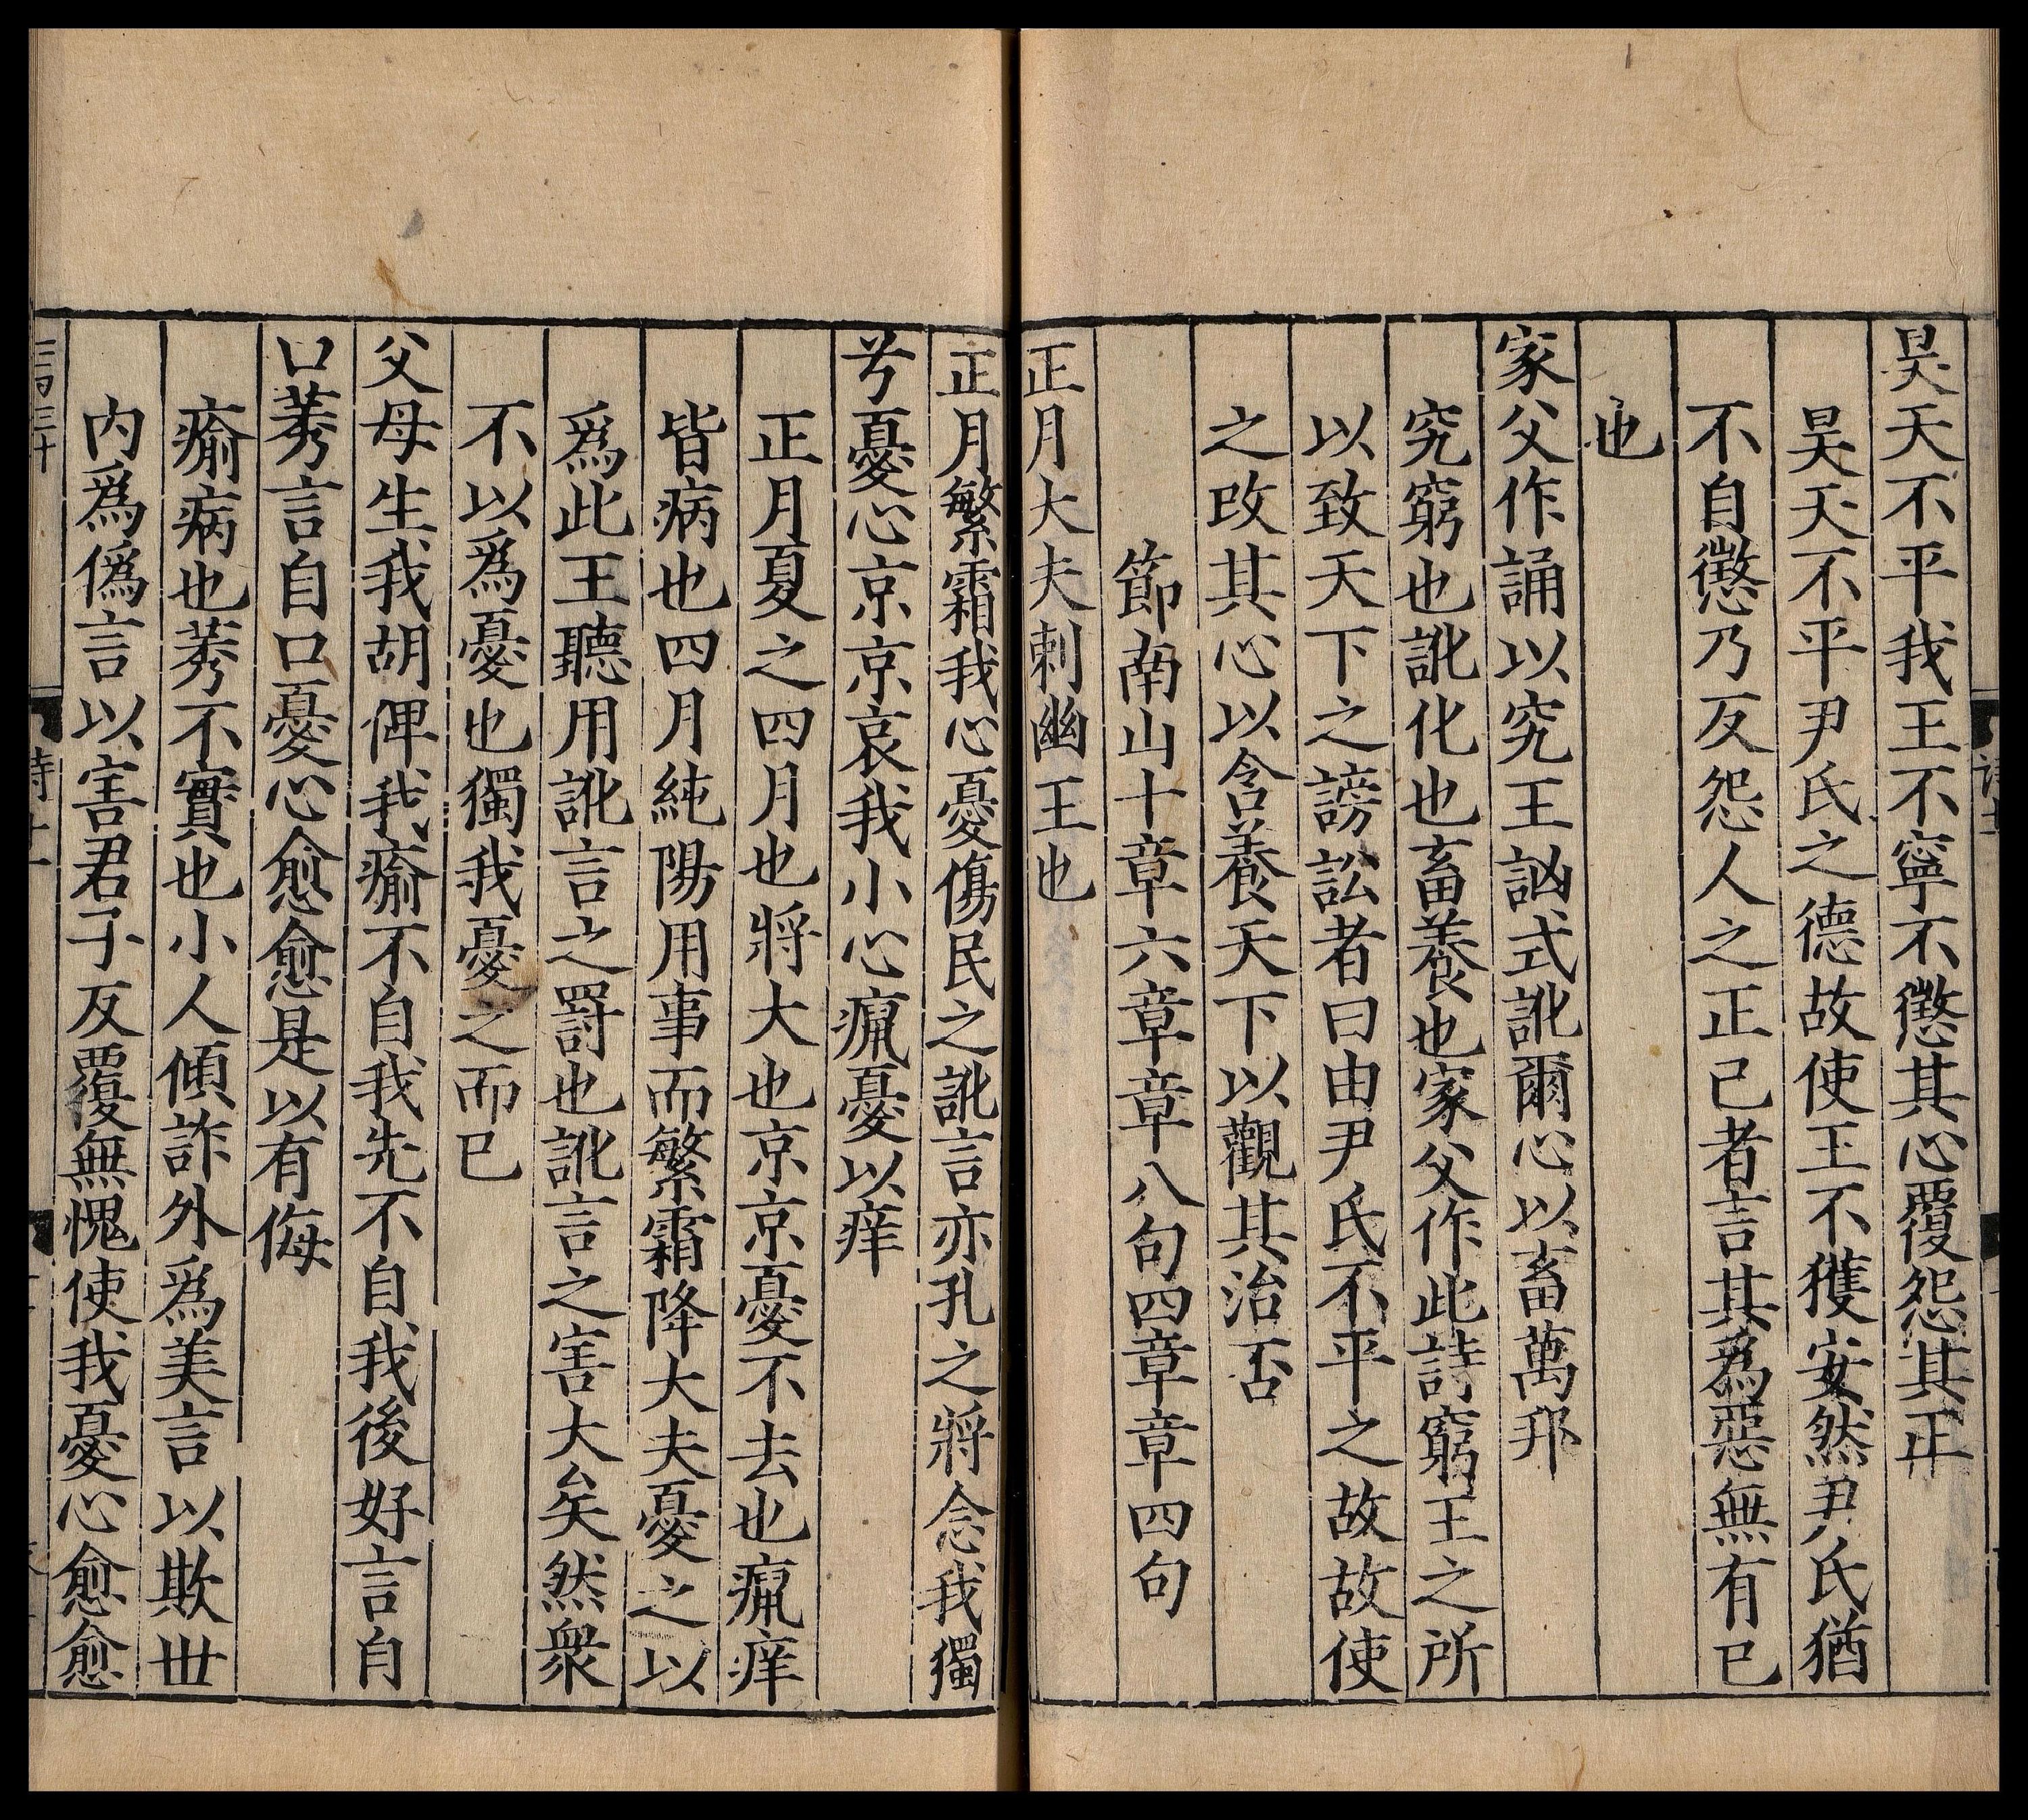 昊天不平我王不寧不懲其心覆怨其正
昊天不平尹氏之德故使王不獲安然尹氏猶
不自懲乃反怨人之正已者言其為惡無有已
也
家父作誦以究王訩式訛爾心以畜萬邦
究窮也訛化也畜養也家父作此詩窮王之所
以致天下之謗訟者曰由尹氏不平之故故使
之改其心以含養天下以觀其治否
節南山十章六章章八句四章章四句
正月大夫刺幽王也
正月繁霜我心憂傷民之訛言亦孔之將念我獨
兮憂心京京哀我小心瘋憂以痒
正月夏之四月也將大也京京憂不去也瘋痒
皆病也四月純陽用事而繁霜降大夫憂之以
爲此王聽用訛言之罸也訛言之害大矣然衆
不以爲憂也獨我憂之而已
父母生我胡俾我瘉不自我先不自我後好言自
口莠言自口憂心愈愈是以有侮
瘉病也莠不實也小人傾詐外爲美言以欺世
内爲僞言以害君子反覆無愧使我憂心愈愈